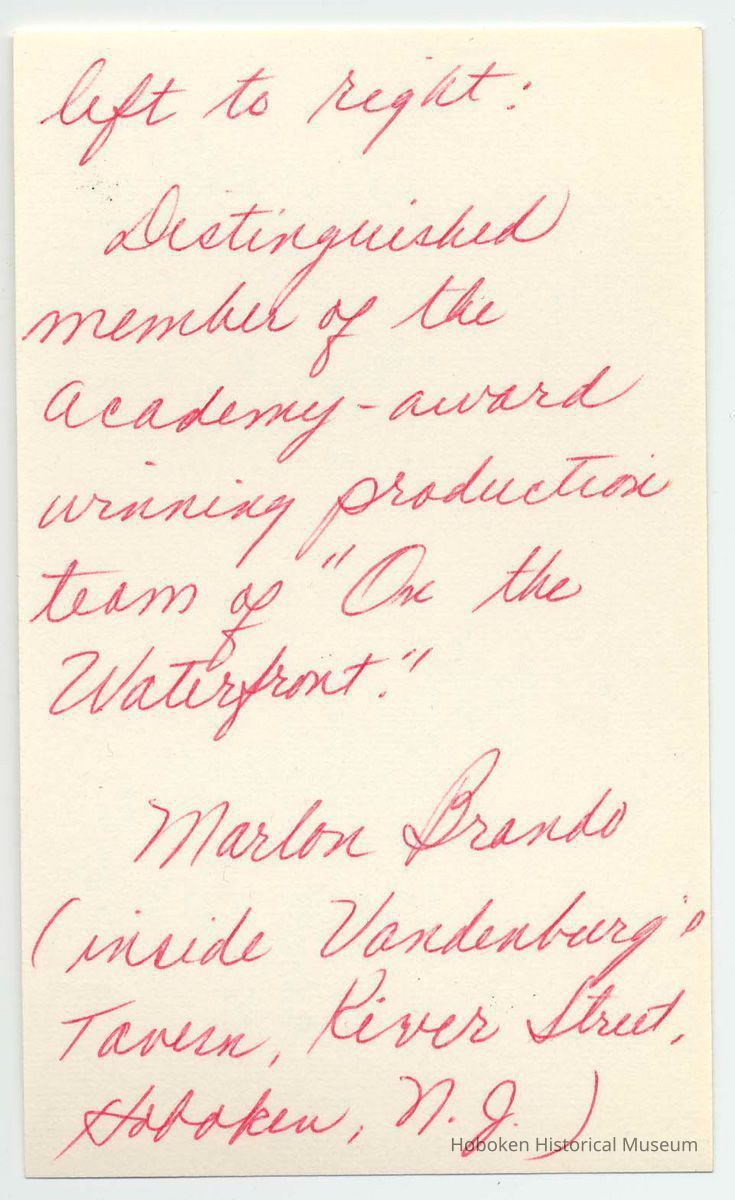 left to right:
Distinguished
member of the
Academy-award
winning production
team of "On the
Waterfront."
Marlon Brando
(inside Vandenburg's
Tavern, River Street,
Hoboken, N.J.)
Hoboken Historical Museum